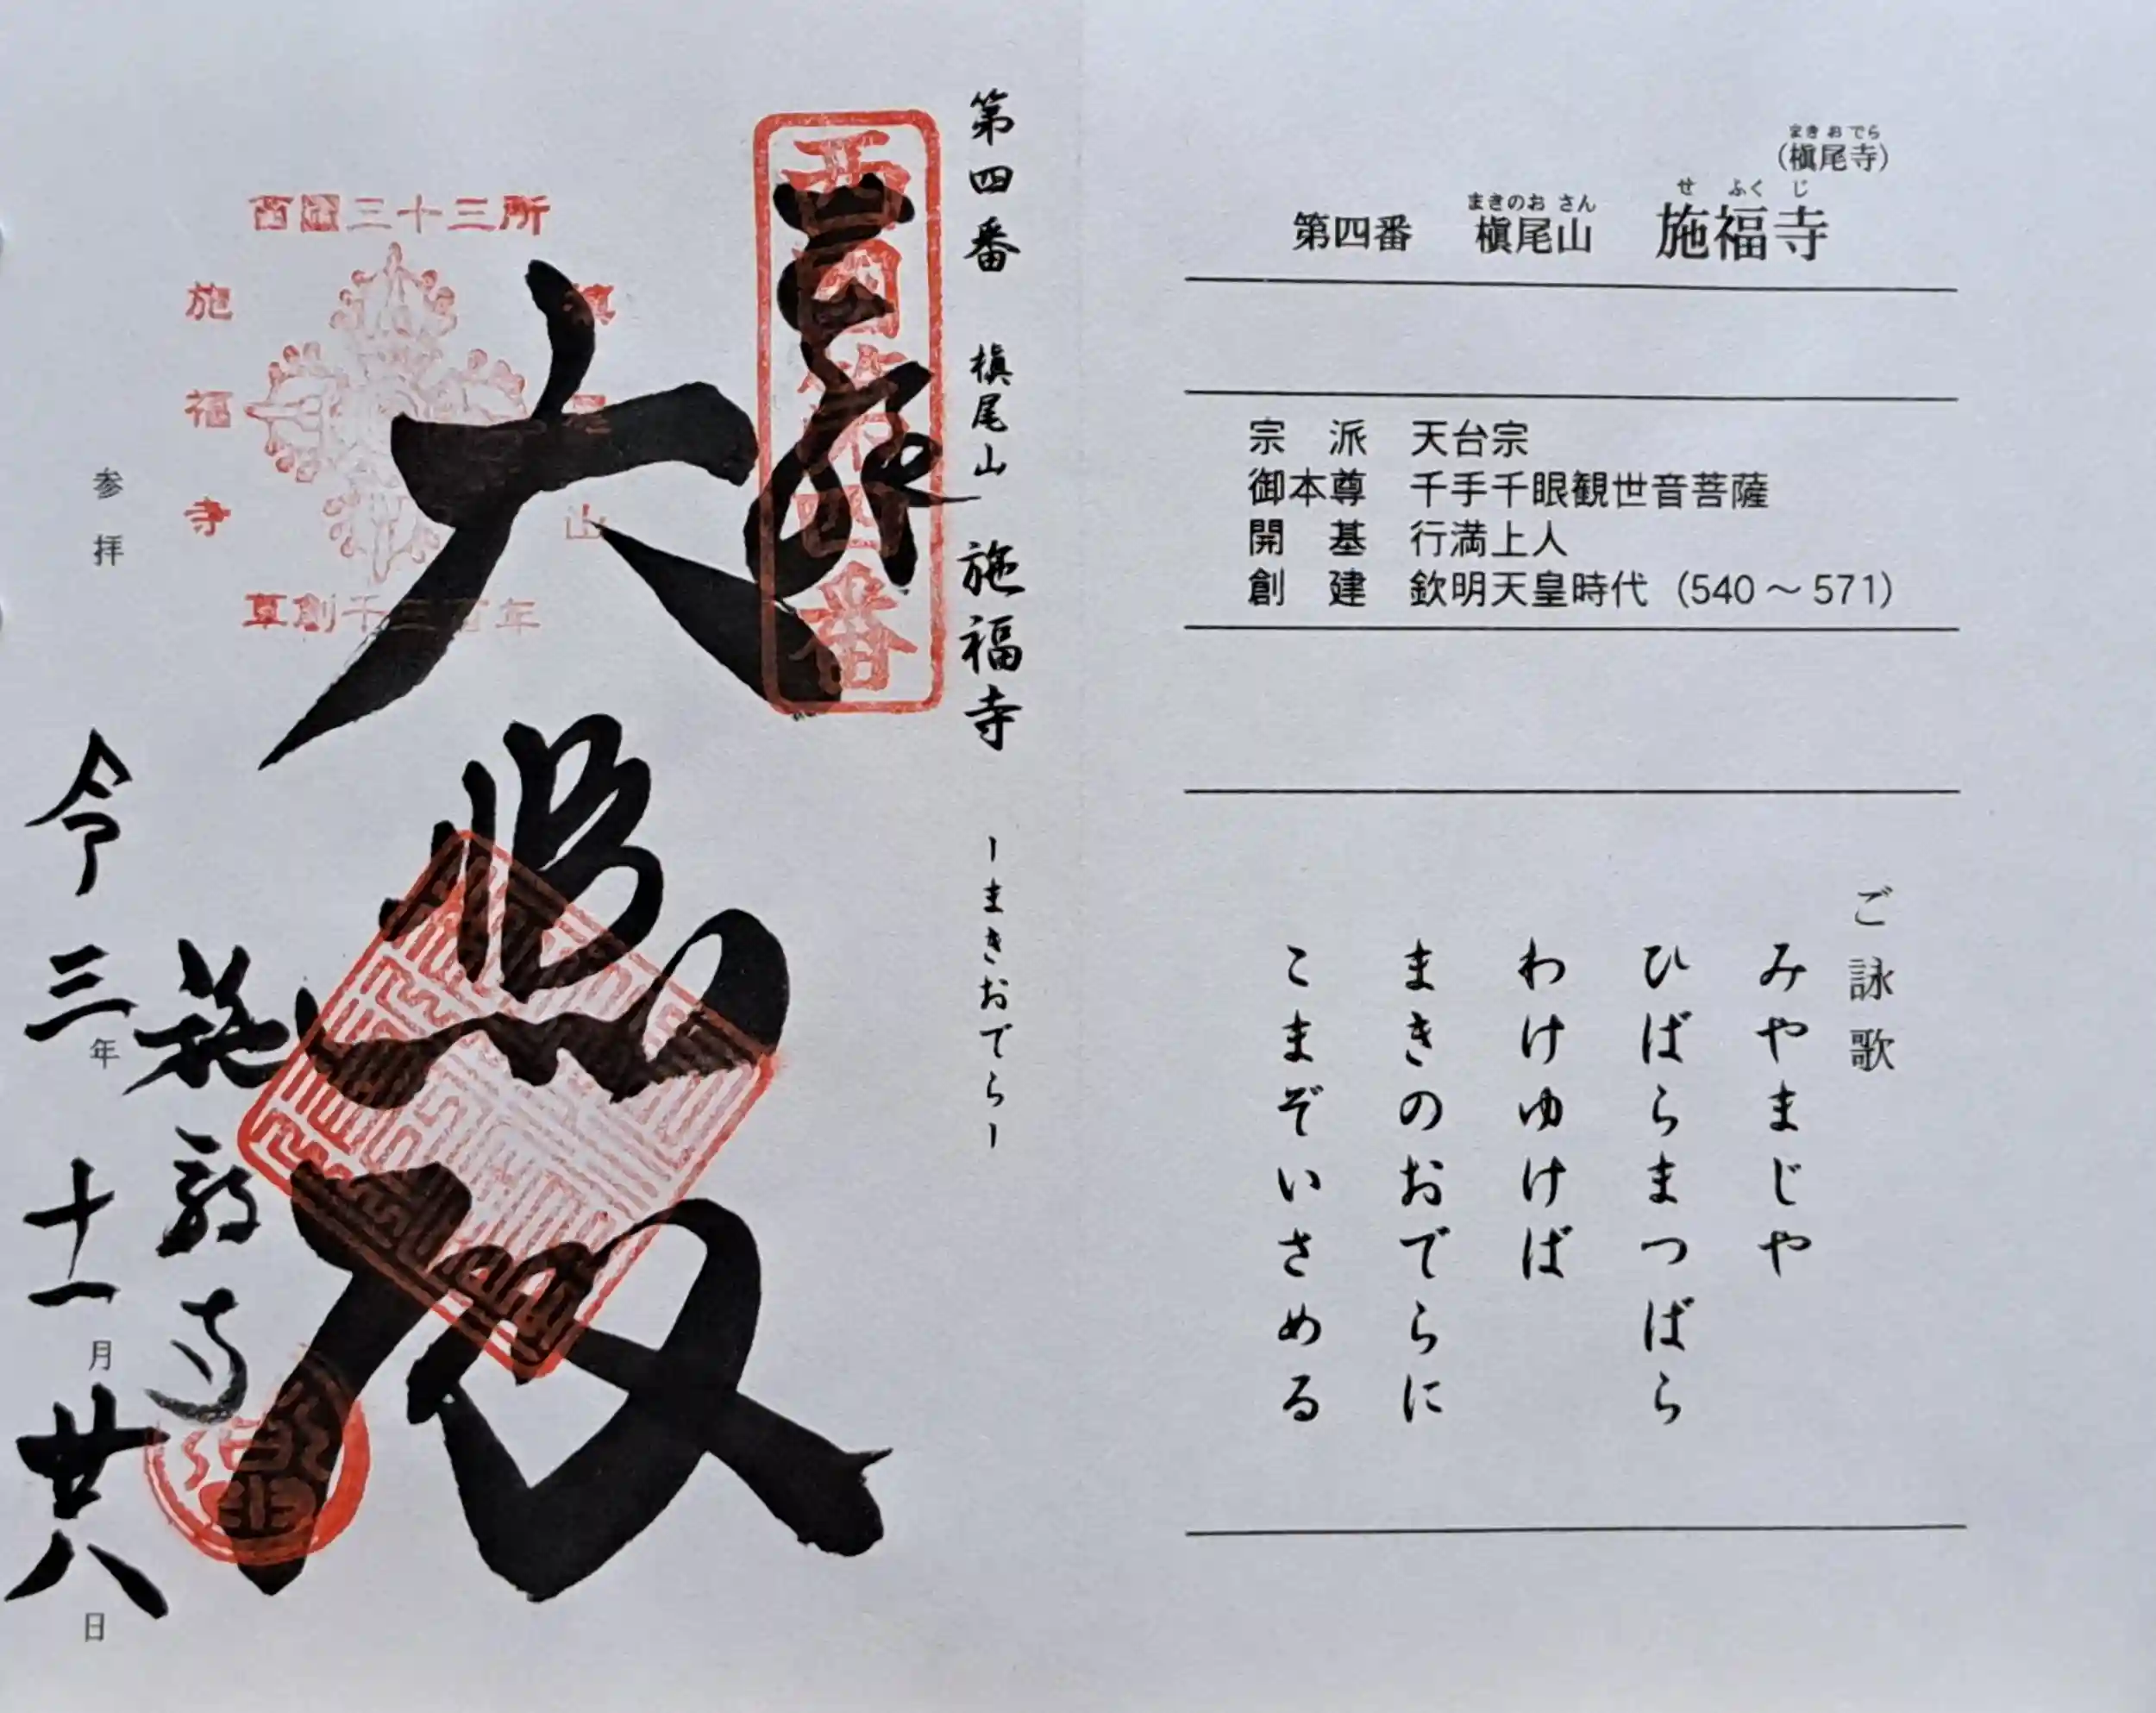 (槇尾寺)
まきおでら
第四番 槇尾山 施福寺
まきのおさん せふくじ
宗派 天台宗
御本尊 千手千眼観世音菩薩
開基 行満上人
創建 欽明天皇時代 (540～571)
ご詠歌
みやまじや
ひばらまつばら
わけゆけば
まきのおでらに
こまぞいさめる
第四番 槇尾山 施福寺 ーまきおでらー
奉拝
西国第四番
大悲殿
西国三十三所
槇尾山
施福寺
草創千三百年
施福寺
参拝
令三年十一月廿八日